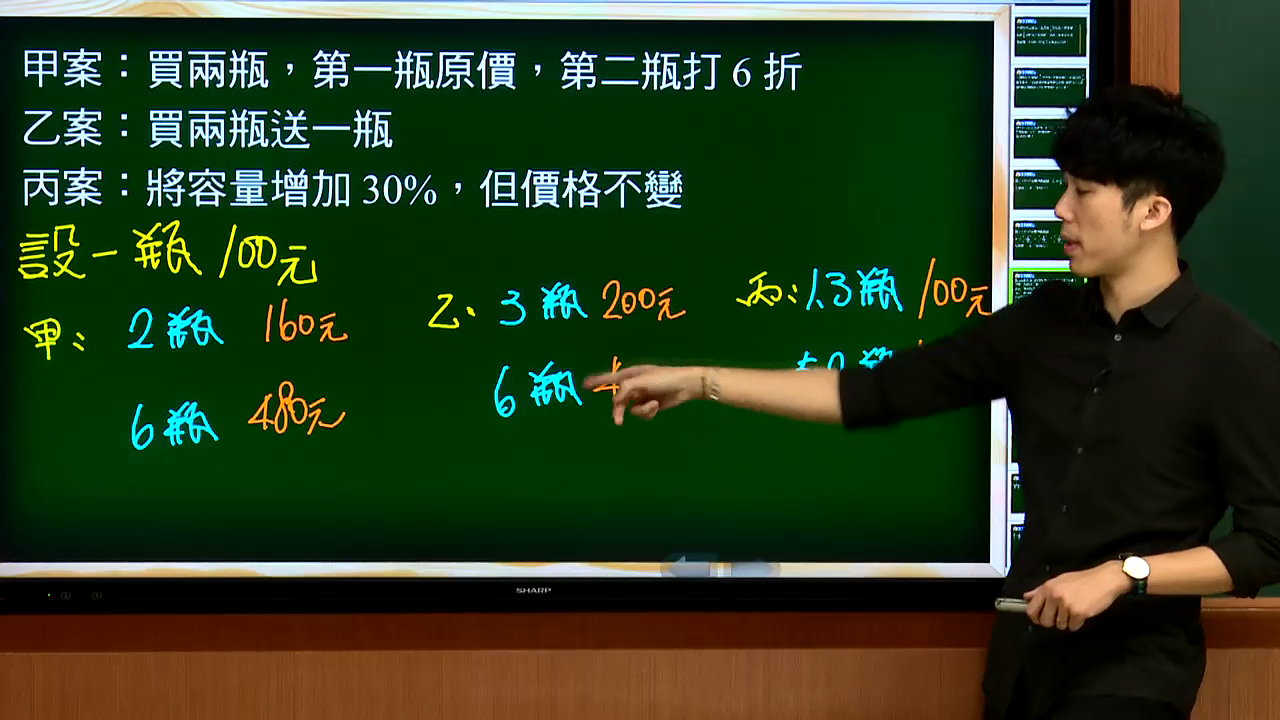 甲案：買兩瓶，第一瓶原價，第二瓶打 6 折
乙案：買兩瓶送一瓶
丙案：將容量增加 30%，但價格不變
設一瓶 100元
甲： 2 瓶 160元
6 瓶 480元
乙： 3 瓶 200元
6 瓶 4
丙： 1.3瓶 100元
瓶
SHARP